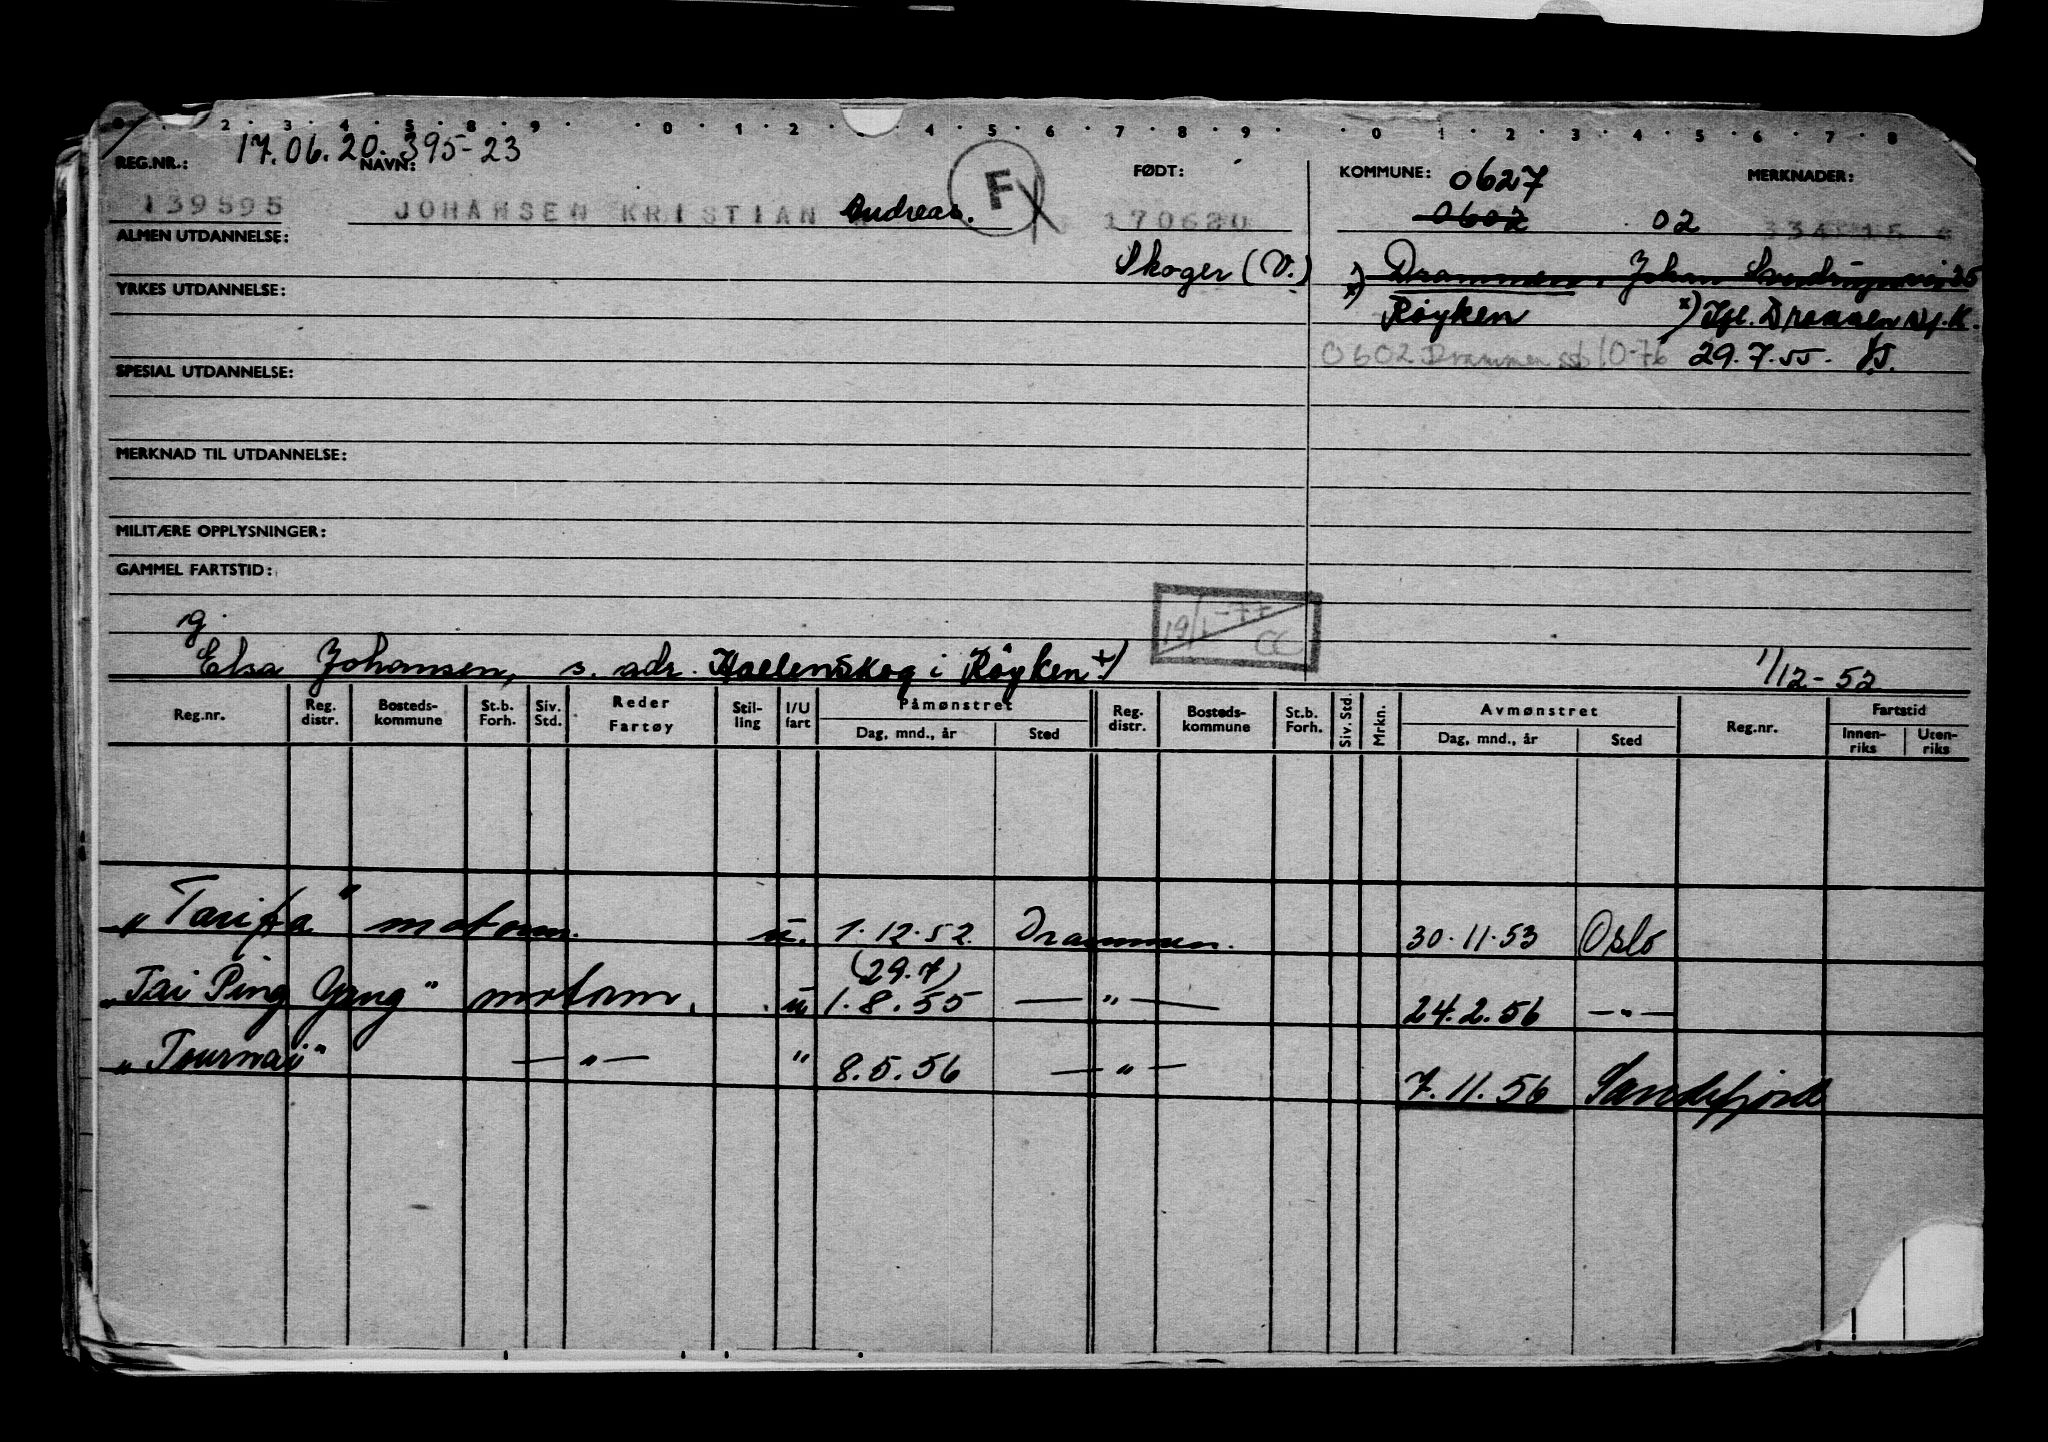 0 . 2 . 3 . 4 . 5 . 8 . 9 . . 0 . 1 . 2 . . 4 . 5 . 6 . 7 . 8 . 9 . . 0 . 1 . 2 . 3 . 4 . 5 . 6 . 7 . 8
17.06.20. 395-23
REG.NR.: NAVN: FØDT: KOMMUNE: 0627 MERKNADER:
139595 JOHANSEN KRISTIAN Andreas. F 170620 0602 02
ALMEN UTDANNELSE:
Skoger (V.) x) Drammen, Johan
YRKES UTDANNELSE:
Røyken x) Drammen
0602 Drammen 10-76 29.7.55.
SPESIAL UTDANNELSE:
MERKNAD TIL UTDANNELSE:
MILITÆRE OPPLYSNINGER:
GAMMEL FARTSTID:
19/1 -77
g.
Elsa Johansen, s. adr. Hallenskog i Røyken
1/12 - 52
Reg.nr. Reg. distr. Bosteds-kommune St.b. Forh. Siv. Std. Reder Fartøy Stil-ling I/U fart Påmønstret Dag, mnd., år Sted Reg. distr. Bosteds-kommune St.b. Forh. Siv. Std. Mrkn. Avmønstret Dag, mnd., år Sted Reg.nr. Fartstid Innen-riks Uten-riks
"Tarifa" motorm. u. 1.12.52 Drammen. 30.11.53 Oslo
(29.7)
"Tai Ping Yang" motorm. u 1.8.55 — " — 24.2.56 — " —
"Tournai" — " — " 8.5.56 — " — 7.11.56 Sandefjord